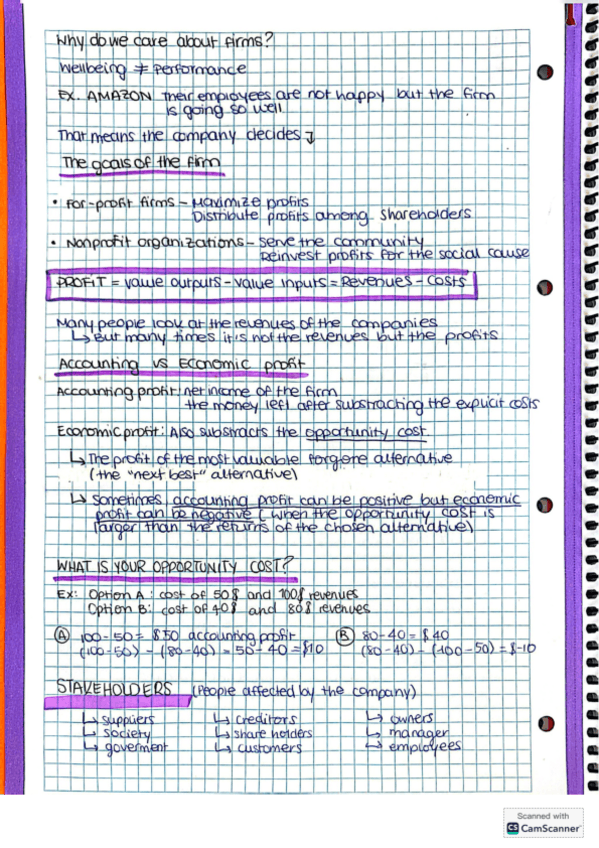 Why do we care about firms?
Wellbeing ≠ Performance
EX. AMAZON Their employees are not happy but the firm
is going so well
That means the company decides ↴
The goals of the firm
• For-profit firms - Maximize profits
Distribute profits among shareholders
• Nonprofit organizations - serve the community
Reinvest profits for the social cause
PROFIT = value outputs - value inputs = Revenues - costs
Many people look at the revenues of the companies
↳ But many times it is not the revenues but the profits
Accounting vs Economic profit
Accounting profit: net income of the firm
the money left after substracting the explicit costs
Economic profit: Also substracts the opportunity cost
↳ The profit of the most valuable forgone alternative
(the "next best" alternative)
↳ Sometimes accounting profit can be positive but economic
profit can be negative (when the opportunity cost is
larger than the returns of the chosen alternative)
WHAT IS YOUR OPPORTUNITY COST?
Ex: Option A: cost of 50$ and 100$ revenues
Option B: cost of 40$ and 80$ revenues
Ⓐ 100-50 = $50 accounting profit
(100-50) - (80-40) = 50-40 = $10
Ⓑ 80-40 = $40
(80-40) - (100-50) = $-10
STAKEHOLDERS (People affected by the company)
↳ suppliers ↳ creditors ↳ owners
↳ society ↳ share holders ↳ manager
↳ goverment ↳ customers ↳ employees
Scanned with
CS CamScanner